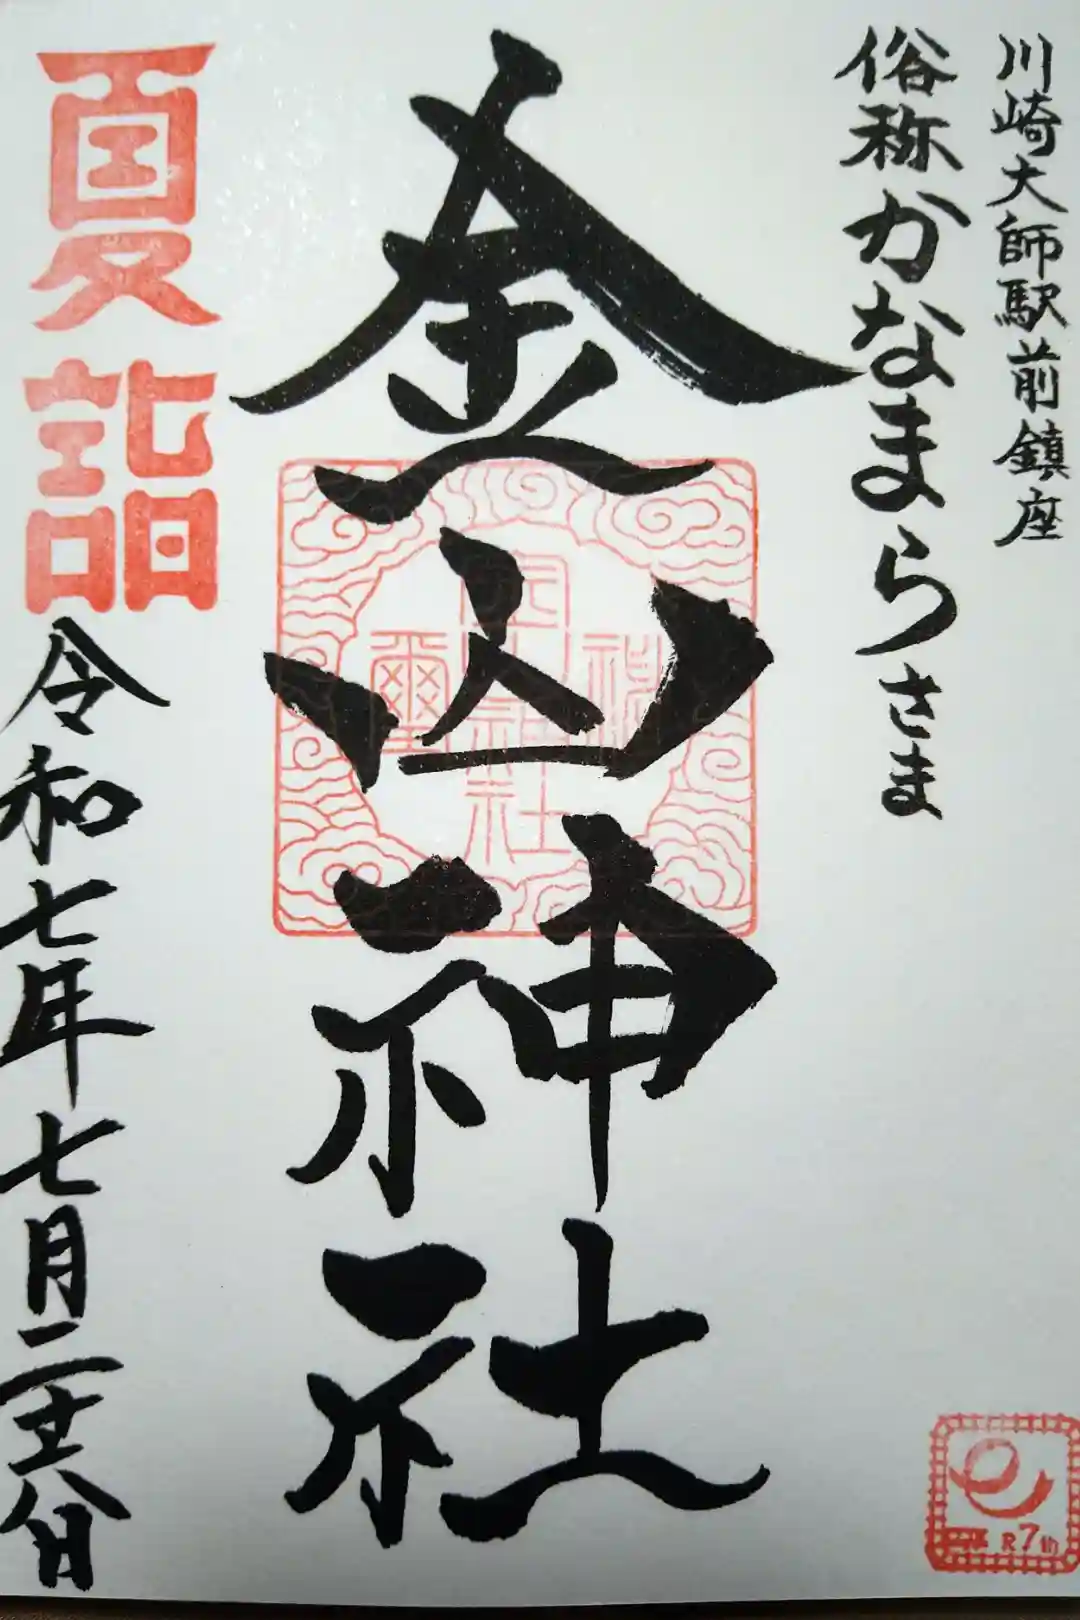 川崎大師駅前鎮座
俗称かなまらさま
金山神社
夏詣
令和七年七月二十
日
R7th